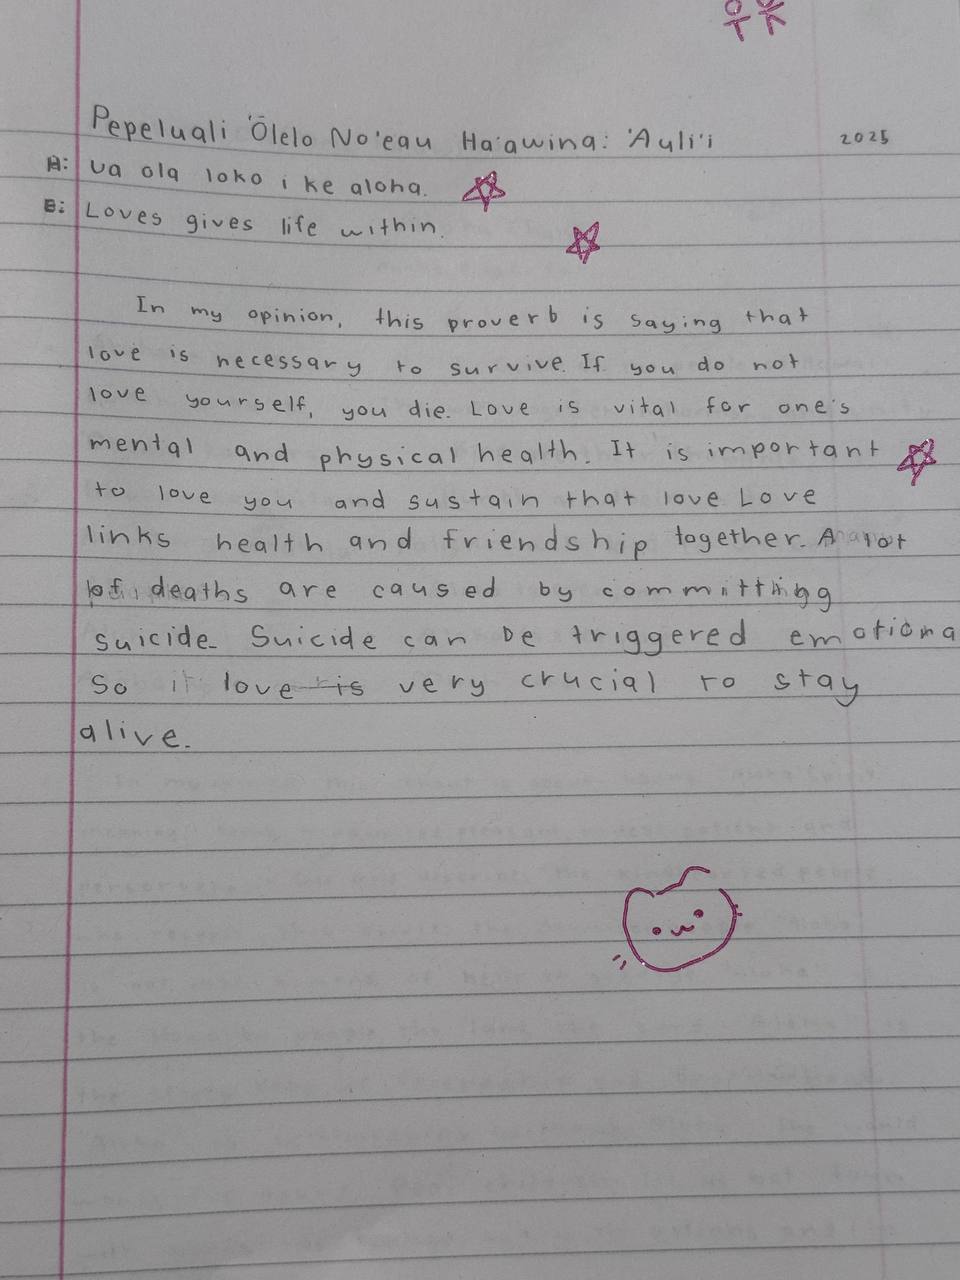 Pepeluali 'Ōlelo No'eau Ha'awina: 'Auli'i 2025
A: Ua ola loko i ke aloha.
B: Loves gives life within.
In my opinion, this proverb is saying that
love is necessary to survive. If you do not
love yourself, you die. Love is vital for one's
mental and physical health. It is important
to love you and sustain that love Love
links health and friendship together. A lot
of deaths are caused by committing
suicide. Suicide can be triggered emotiona
So it love is very crucial to stay
alive.